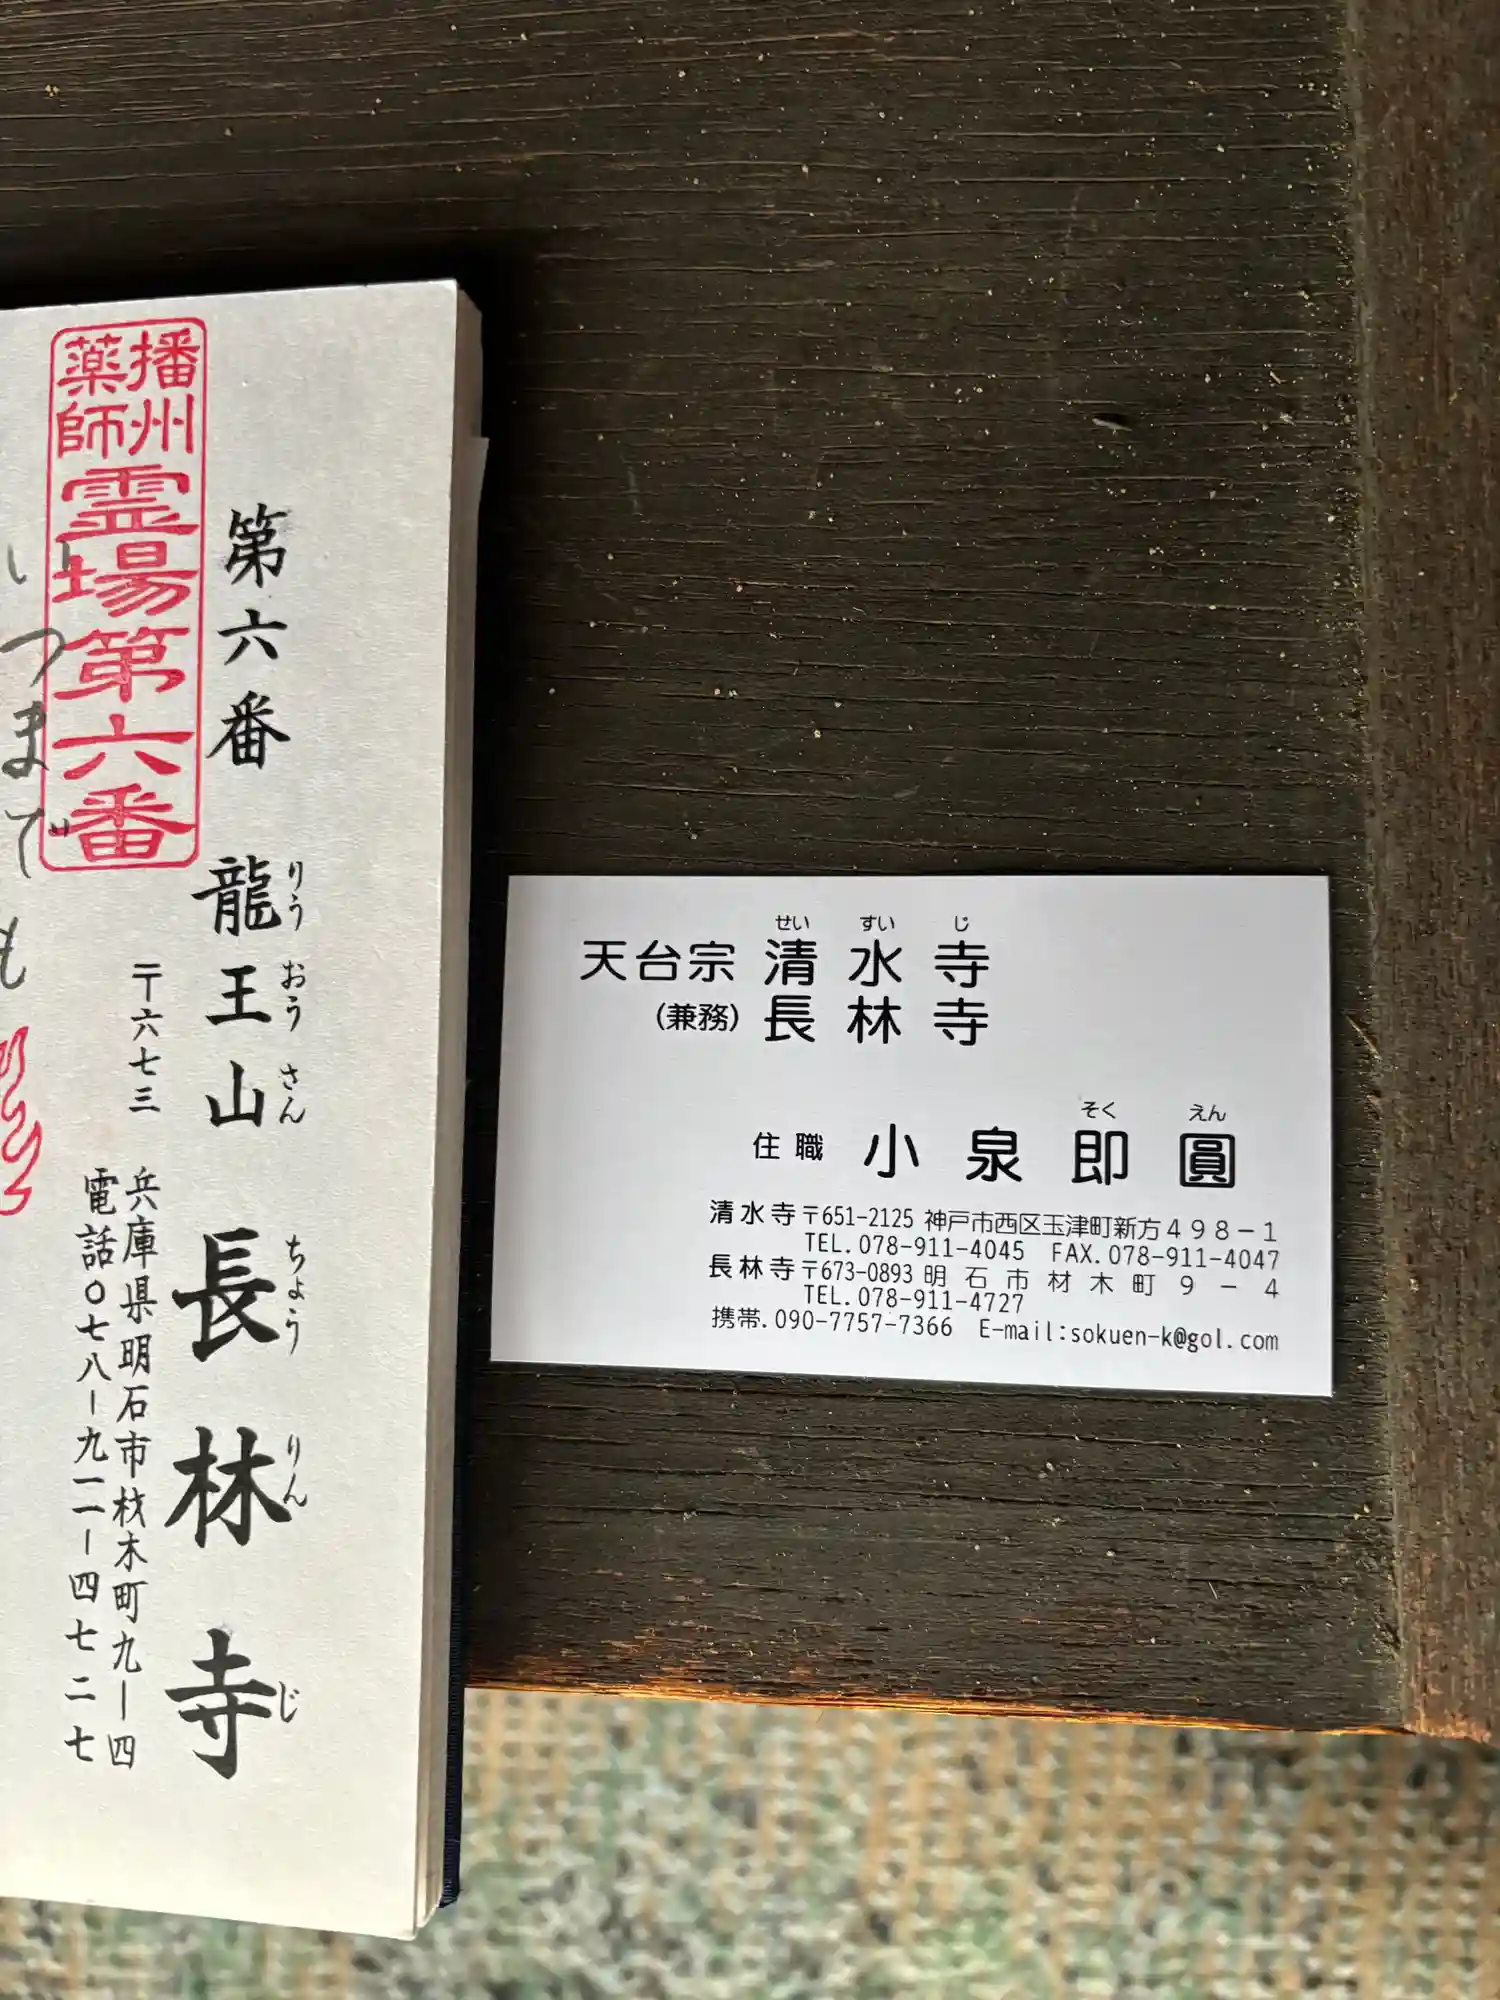 播州
薬師
霊場第六番
第六番 龍王山 長林寺
りうおうさん ちょうりんじ
〒六七三 兵庫県明石市材木町九ー四
電話〇七八ー九一一ー四七二七
いつまでも
せいすいじ
天台宗 清水寺
(兼務) 長林寺
そく えん
住職 小泉即圓
清水寺 〒651-2125 神戸市西区玉津町新方498-1
TEL.078-911-4045 FAX.078-911-4047
長林寺 〒673-0893 明石市材木町9-4
TEL.078-911-4727
携帯.090-7757-7366 E-mail:sokuen-k@gol.com